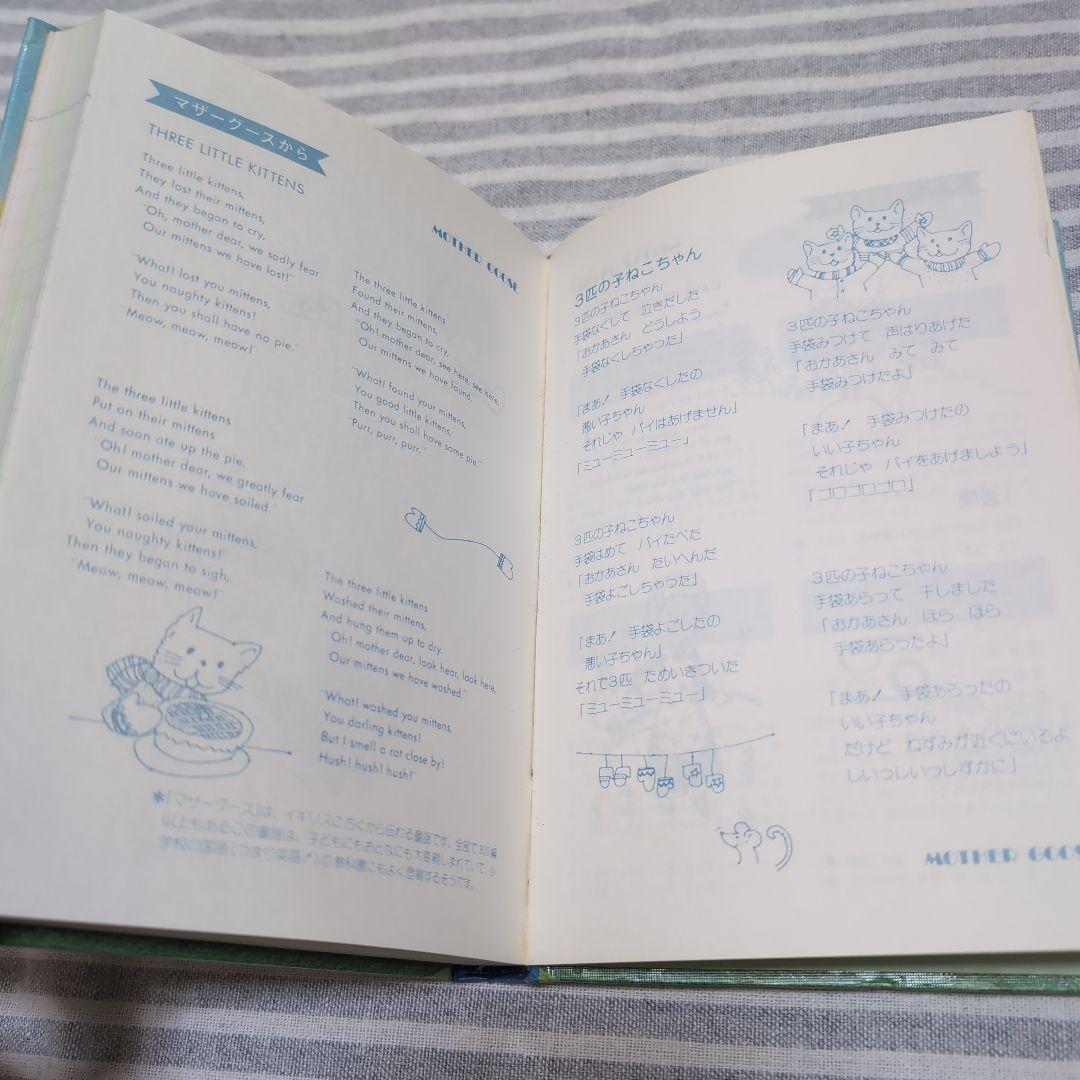 マザーグースから
THREE LITTLE KITTENS
Three little kittens,
They lost their mittens,
And they began to cry,
"Oh, mother dear, we sadly fear
Our mittens we have lost!"
"What! lost you mittens,
You naughty kittens!
Then you shall have no pie."
Meow, meow, meow!"
MOTHER GOOSE
The three little kittens
Found their mittens,
And they began to cry,
"Oh! mother dear, see here, see here,
Our mittens we have found."
"What! found your mittens,
You good little kittens,
Then you shall have some pie."
"Purr, purr, purr."
The three little kittens
Put on their mittens
And soon ate up the pie.
"Oh! mother dear, we greatly fear
Our mittens we have soiled."
"What! soiled your mittens,
You naughty kittens!"
Then they began to sigh,
"Meow, meow, meow!"
The three little kittens
Washed their mittens,
And hung them up to dry.
"Oh! mother dear, look hear, look here,
Our mittens we have washed."
"What! washed you mittens,
You darling kittens!
But I smell a rat close by!
Hush! hush! hush!"
*「マザーグース」は、イギリスに古くから伝わる童謡です。全部で800編
以上もあるこの童謡は、子どもにもおとなにも大変親しまれていて、小
学校の国語(つまり英語!)の教科書にもよく登場するそうです。
3匹の子ねこちゃん
3匹の子ねこちゃん
手袋なくして 泣きだした
「おかあさん どうしよう
手袋なくしちゃった」
「まあ! 手袋なくしたの
悪い子ちゃん
それじゃ パイはあげません」
「ミューミューミュー」
3匹の子ねこちゃん
手袋みつけて 声はりあげた
「おかあさん みて みて
手袋みつけたよ」
「まあ! 手袋みつけたの
いい子ちゃん
それじゃ パイをあげましよう」
「ゴロゴロゴロ」
3匹の子ねこちゃん
手袋はめて パイたべた
「おかあさん たいへんだ
手袋よごしちゃった」
「まあ! 手袋よごしたの
悪い子ちゃん」
それで3匹 ためいきついた
「ミューミューミュー」
3匹の子ねこちゃん
手袋あらって 干しました
「おかあさん ほら ほら
手袋あらったよ」
「まあ! 手袋あらったの
いい子ちゃん
だけど ねずみが近くにいるよ
しいっしいっしずかに」
MOTHER GOOS